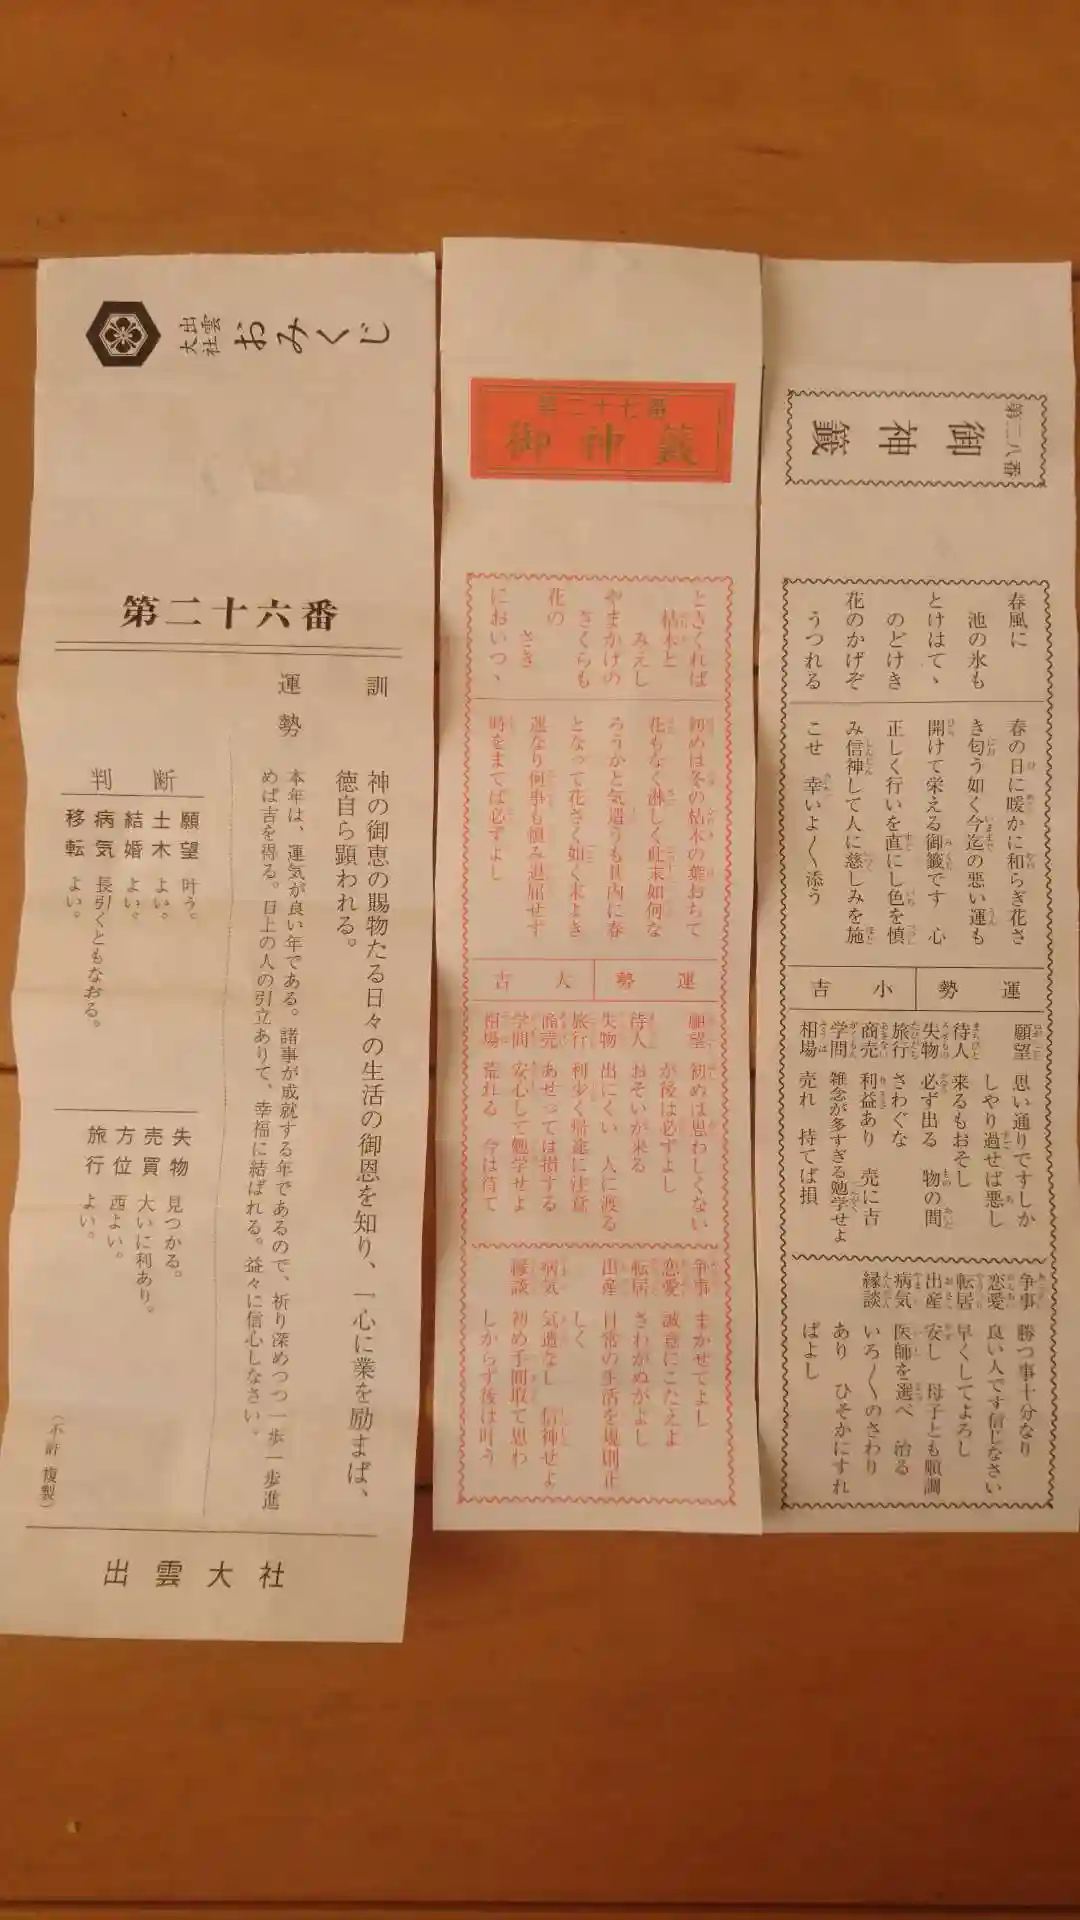 出雲大社
おみくじ
第二十六番
訓
神の御恵の賜物たる日々の生活の御恩を知り、一心に業を励まば、
徳自ら顕われる。
運勢
本年は、運気が良い年である。諸事が成就する年であるので、祈り深めつつ一歩一歩進
めば吉を得る。目上の人の引立ありて、幸福に結ばれる。益々に信心しなさい。
判断
願望 叶う。
土木 よい。
結婚 よい。
病気 長引くともなおる。
移転 よい。
失物 見つかる。
売買 大いに利あり。
方位 西よい。
旅行 よい。
(不許複製)
出雲大社
第二十七番
御神籤
ときくれば
枯木と
みえし
やまかげの
さくらも
花の
さき
においつゝ
初めは冬の枯木の葉おちて
花もなく淋しく此末如何な
ろうかと気遣うも其内に春
となって花さく如く末よき
運なり何事も慎み退屈せず
時をまてば必ずよし
運勢 大吉
願望 初めは思わしくない
が後は必ずよし
待人 おそいが来る
失物 出にくい 人に渡る
旅行 利少く帰途に注意
商売 あせっては損する
学問 安心して勉学せよ
相場 荒れる 今は待て
争事 まかせてよし
恋愛 誠意にこたえよ
転居 さわがぬがよし
出産 日常の生活を規則正
しく
病気 気遣なし 信神せよ
縁談 初め手間取て思わ
しからず後は叶う
第二八番
御神籤
春風に
池の氷も
とけはてゝ
のどけき
花のかげぞ
うつれる
春の日に暖かに和らぎ花さ
き匂う如く今迄の悪い運も
開けて栄える御籤です 心
正しく行いを直にし色を慎
み信神して人に慈しみを施
こせ 幸いよ〱添う
運勢 小吉
願望 思い通りですしか
しやり過せば悪し
待人 来るもおそし
失物 必ず出る 物の間
旅行 さわぐな
商売 利益あり 売に吉
学問 雑念が多すぎる勉学せよ
相場 売れ 持てば損
争事 勝つ事十分なり
恋愛 良い人です信じなさい
転居 早くしてよろし
出産 安し 母子とも順調
病気 医師を選べ 治る
縁談 いろ〱のさわり
あり ひそかにすれ
ばよし